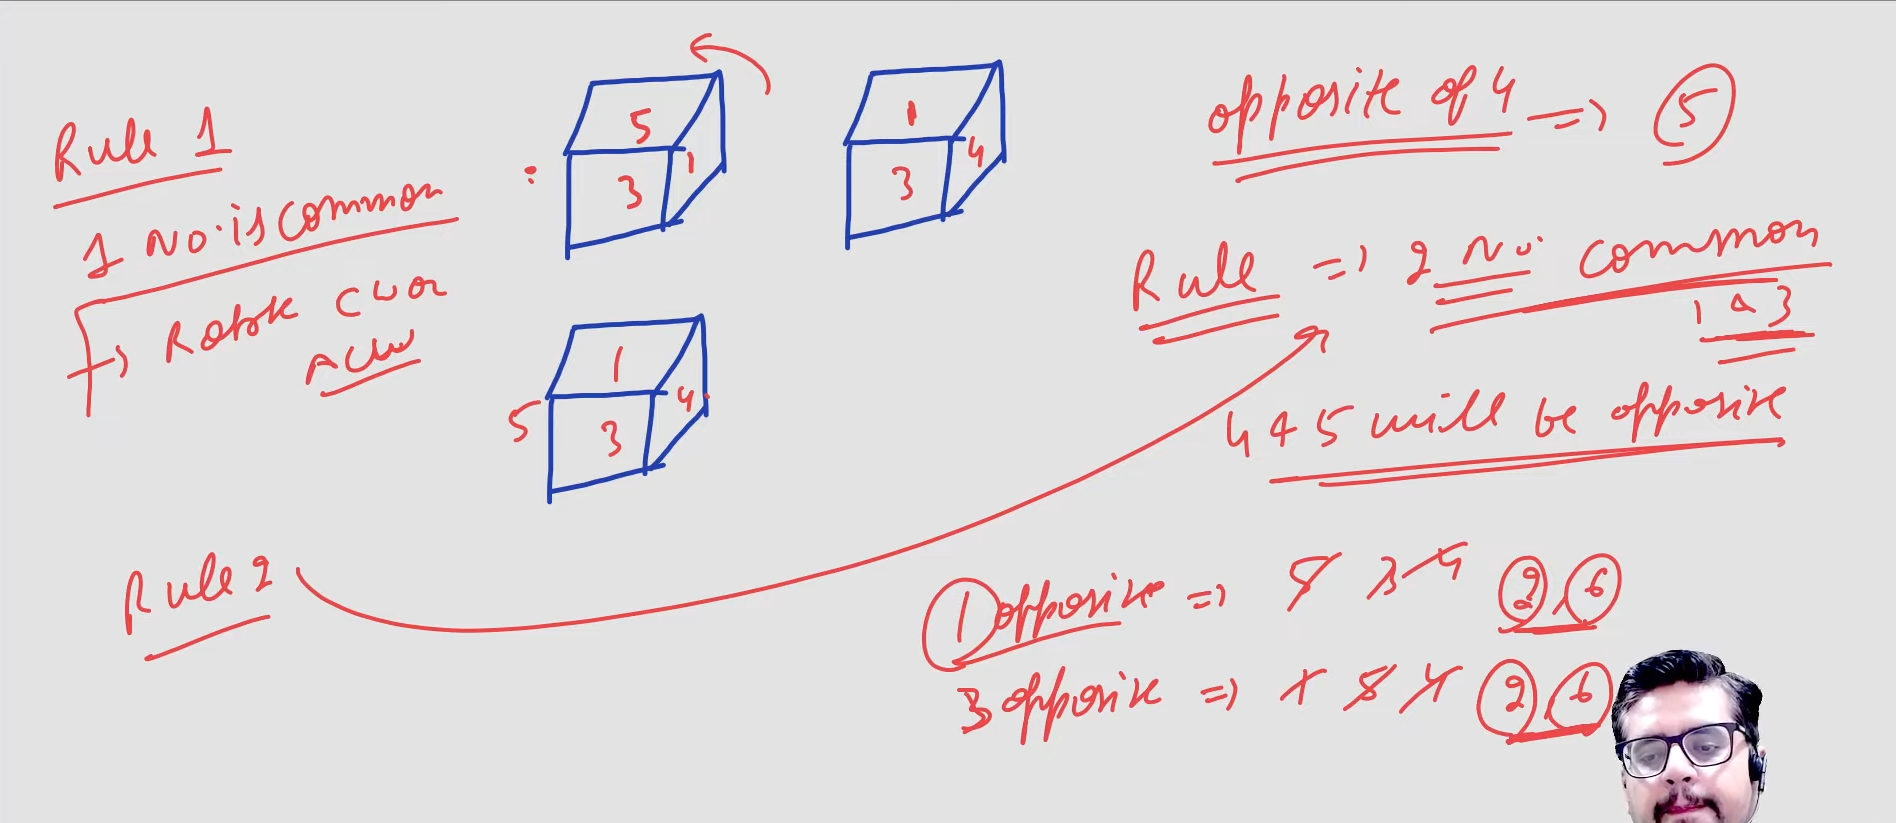 Rule 1
1 No. is common
→ Rotate CW or
ACW
5
3
1
1
3
4
5
1
3
4
Rule 2
opposite of 4 => 5
Rule => 2 No. common
1 & 3
4 & 5 will be opposite
1 opposite => 5 3 4 2, 6
3 opposite => 1 5 4 2, 6